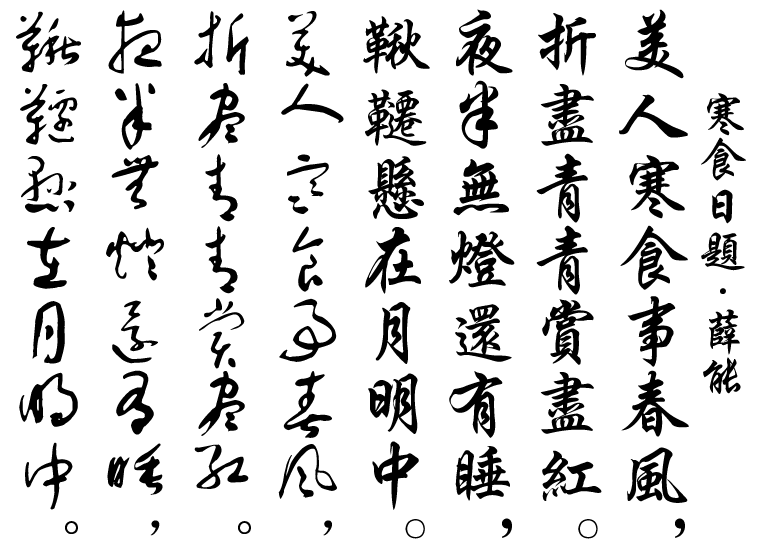 寒食日題·薛能
美人寒食事春風，
折盡青青賞盡紅。
夜半無燈還有睡，
鞦韆懸在月明中。
美人寒食事春風，
折盡青青賞盡紅。
夜半無燈還有睡，
鞦韆懸在月明中。